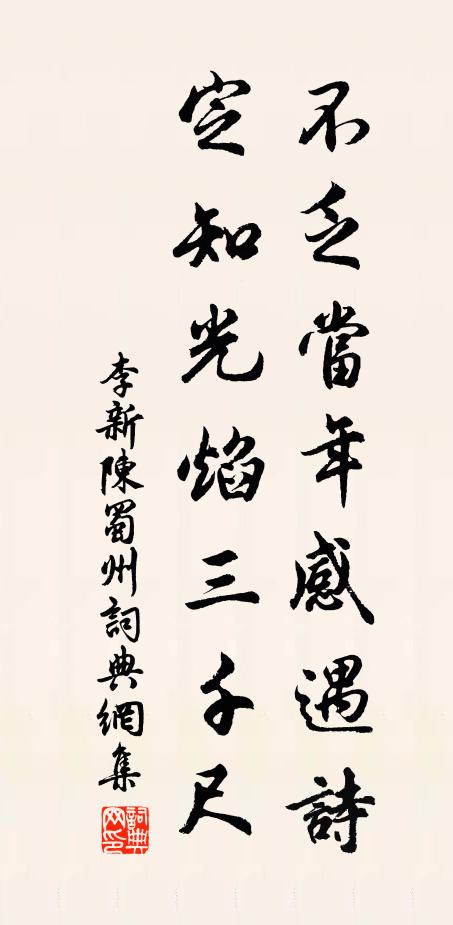 不乏當年感遇詩
定知光焰三千尺
李新陳蜀州詞典網集
詞典网印